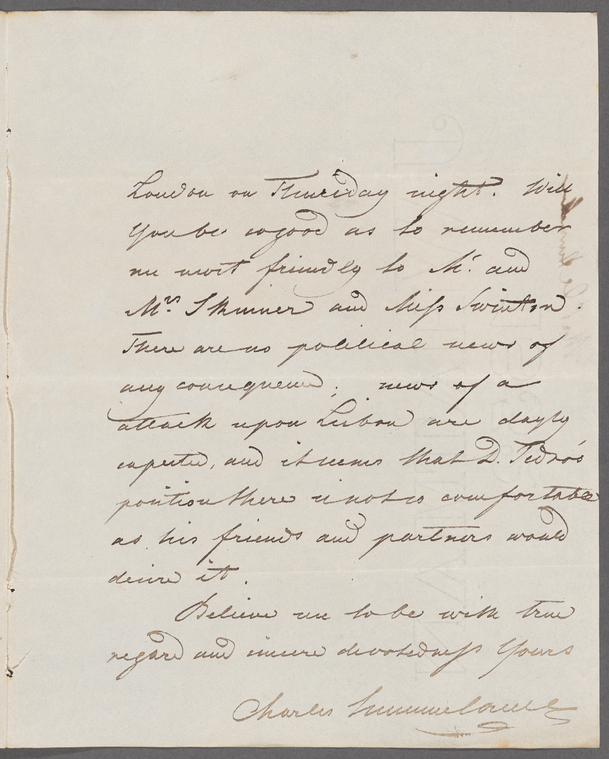 London on Thursday night. Will
you be so good as to remember
me most friendly to Mr. and
Mrs Skinner and Miss Swinton.
There are no political news of
any consequence; news of a
attack upon Lisbon are dayly
expected, and it seems that D. Pedro's
position there is not so comfortable
as his friends and partners would
desire it.
Believe me to be with true
regard and sincere devotedness Yours
Charles